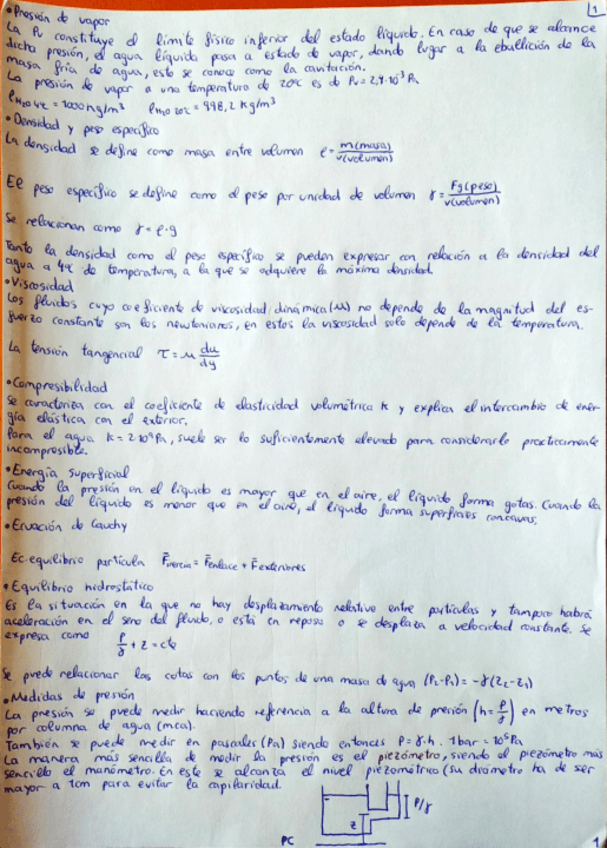 1
• Presión de vapor
La Pv constituye el límite físico inferior del estado líquido. En caso de que se alcance
dicha presión, el agua líquida pasa a estado de vapor, dando lugar a la ebullición de la
masa fría de agua, esto se conoce como la cavitación.
La presión de vapor a una temperatura de 20ºC es de Pv = 2,4·10³ Pa
ρH₂O 4ºC = 1000 kg/m³ ρH₂O 20ºC = 998,2 kg/m³
• Densidad y peso específico
La densidad se define como masa entre volumen ρ = m(masa)/v(volumen)
El peso específico se define como el peso por unidad de volumen γ = Fg(peso)/v(volumen)
Se relacionan como γ = ρ·g
Tanto la densidad como el peso específico se pueden expresar con relación a la densidad del
agua a 4ºC de temperatura, a la que se adquiere la máxima densidad.
• Viscosidad
Los fluidos cuyo coeficiente de viscosidad dinámica (μ) no depende de la magnitud del es-
fuerzo constante son los newtonianos, en estos la viscosidad solo depende de la temperatura.
La tensión tangencial τ = μ du/dy
• Compresibilidad
Se caracteriza con el coeficiente de elasticidad volumétrica k y explica el intercambio de ener-
gía elástica con el exterior.
Para el agua k = 2·10⁹ Pa, suele ser lo suficientemente elevado para considerarlo practicamente
incompresible.
• Energía superficial
Cuando la presión en el líquido es mayor que en el aire, el líquido forma gotas. Cuando la
presión del líquido es menor que en el aire, el líquido forma superficies concavas.
• Ecuación de Cauchy
Ec. equilibrio partícula F̄inercia = F̄enlace + F̄exteriores
• Equilibrio hidrostático
Es la situación en la que no hay desplazamiento relativo entre partículas y tampoco habrá
aceleración en el seno del fluido, o está en reposo o se desplaza a velocidad constante. Se
expresa como P/γ + z = cte
Se puede relacionar las cotas con los puntos de una masa de agua (P₂-P₁) = -γ(z₂-z₁)
• Medidas de presión
La presión se puede medir haciendo referencia a la altura de presión (h = P/γ) en metros
por columna de agua (mca).
También se puede medir en pascales (Pa) siendo entonces P = γ·h. 1bar = 10⁵ Pa
La manera más sencilla de medir la presión es el piezómetro, siendo el piezómetro más
sencillo el manómetro. En este se alcanza el nivel piezométrico (su diámetro ha de ser
mayor a 1cm para evitar la capilaridad.
P/γ
z
PC
1